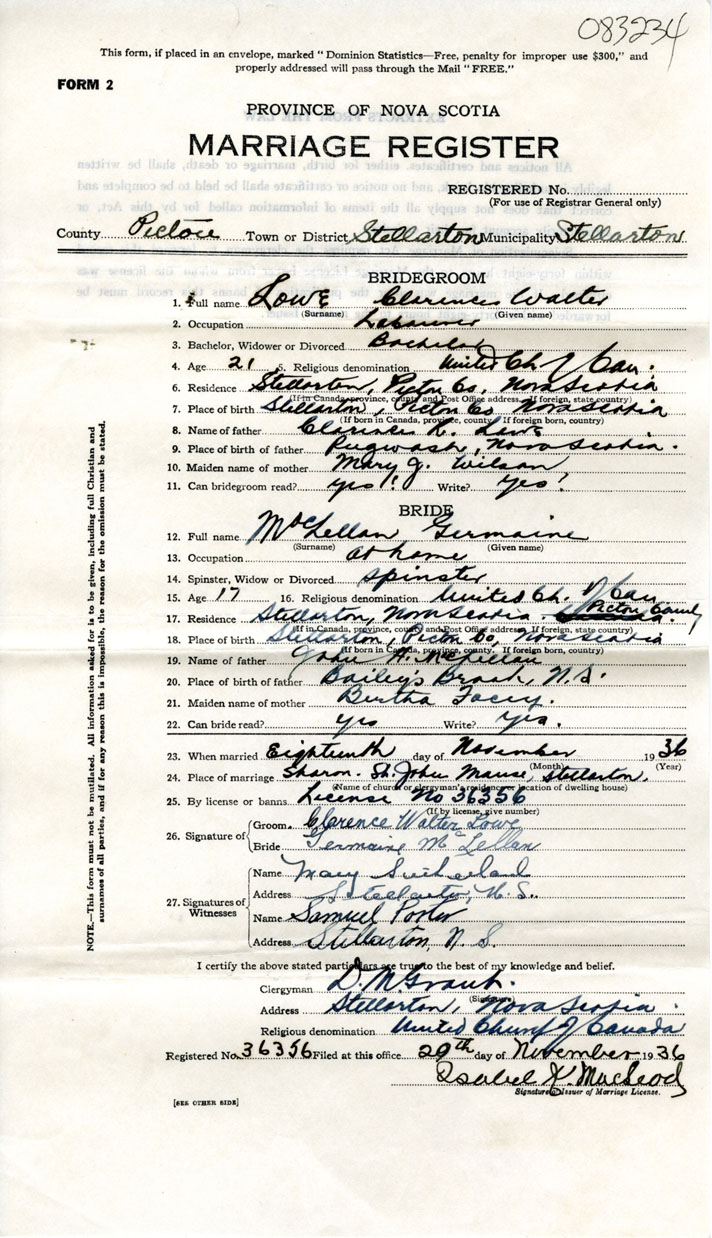 083234
This form, if placed in an envelope, marked "Dominion Statistics—Free, penalty for improper use $300," and
properly addressed will pass through the Mail "FREE."
FORM 2
PROVINCE OF NOVA SCOTIA
MARRIAGE REGISTER
REGISTERED No.
(For use of Registrar General only)
County Pictou Town or District Stellarton Municipality Stellarton
BRIDEGROOM
1. Full name Lowe Clarence Walter
(Surname) (Given name)
2. Occupation
3. Bachelor, Widower or Divorced Bachelor
4. Age 21 5. Religious denomination United Ch of Can.
6. Residence Stellarton, Pictou Co. Nova Scotia
(If in Canada, province, county and Post Office address. If foreign, state country)
7. Place of birth Stellarton, Pictou Co Nova Scotia
(If born in Canada, province, county. If foreign born, country)
8. Name of father Clarence R. Lowe
9. Place of birth of father Pugwash, Nova Scotia.
10. Maiden name of mother Mary J. Wilson
11. Can bridegroom read? yes! Write? yes!
BRIDE
12. Full name MacLellan Germaine
(Surname) (Given name)
13. Occupation at home
14. Spinster, Widow or Divorced spinster
15. Age 17 16. Religious denomination United Ch. of Can
17. Residence Stellarton, Nova Scotia Pictou County
(If in Canada, province, county and Post Office address. If foreign, state country)
18. Place of birth Stellarton, Pictou Co, Nova Scotia
(If born in Canada, province, county. If foreign born, country)
19. Name of father John A. McLellan
20. Place of birth of father Bailey's Brook, N.S.
21. Maiden name of mother Bertha Facey.
22. Can bride read? yes Write? yes.
23. When married Eighteenth day of November 1936
(Month) (Year)
24. Place of marriage Sharon. St. John Manse, Stellarton.
(Name of church or clergyman's residence or location of dwelling house)
25. By license or banns License No 36356
(If by license, give number)
26. Signature of Groom Clarence Walter Lowe
Bride Germaine McLellan
27. Signatures of Witnesses
Name Mary Sutherland
Address Stellarton, N.S.
Name Samuel Porter
Address Stellarton, N.S.
I certify the above stated particulars are true to the best of my knowledge and belief.
Clergyman D. M. Grant.
(Signature)
Address Stellarton, Nova Scotia.
Religious denomination United Church of Canada
Registered No. 36356 Filed at this office 20th day of November 1936
Isabel K. MacLeod
Signature of Issuer of Marriage License.
[SEE OTHER SIDE]
NOTE.—This form must not be mutilated. All information asked for is to be given, including full Christian and
surnames of all parties, and if for any reason this is impossible, the reason for the omission must be stated.